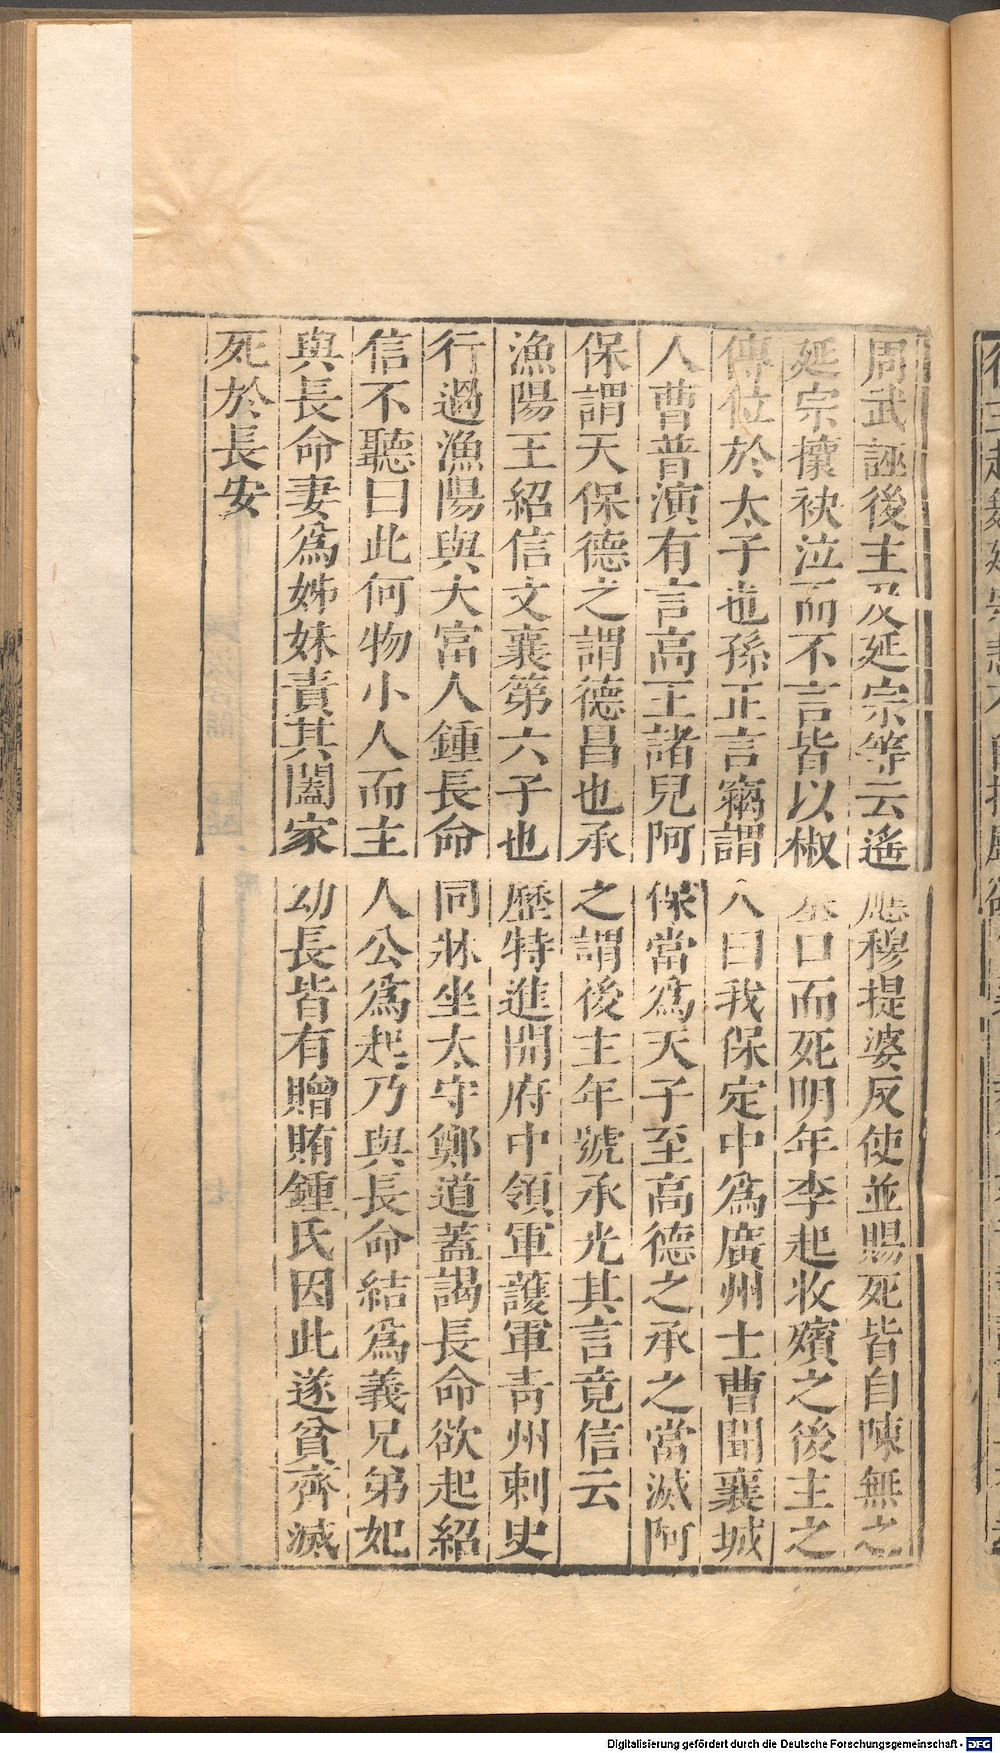 周武誣後主及延宗等云遙應穆提婆反使並賜死皆自陳無之
延宗攘袂泣而不言皆以椒塞口而死明年李起收殯之後主之
傳位於太子也孫正言竊謂人曰我保定中為廣州士曹聞襄城
人曹普演有言高王諸兒阿保當為天子至高德之承之當滅阿
保謂天保德之謂德昌也承之謂後主年號承光其言竟信云
漁陽王紹信文襄第六子也歷特進開府中領軍護軍青州刺史
行過漁陽與大富人鍾長命同牀坐太守鄭道蓋謁長命欲起紹
信不聽曰此何物小人而主人公為起乃與長命結為義兄弟妃
與長命妻為姊妹責其闔家幼長皆有贈賄鍾氏因此遂貧齊滅
死於長安
Digitalisierung gefördert durch die Deutsche Forschungsgemeinschaft - DFG